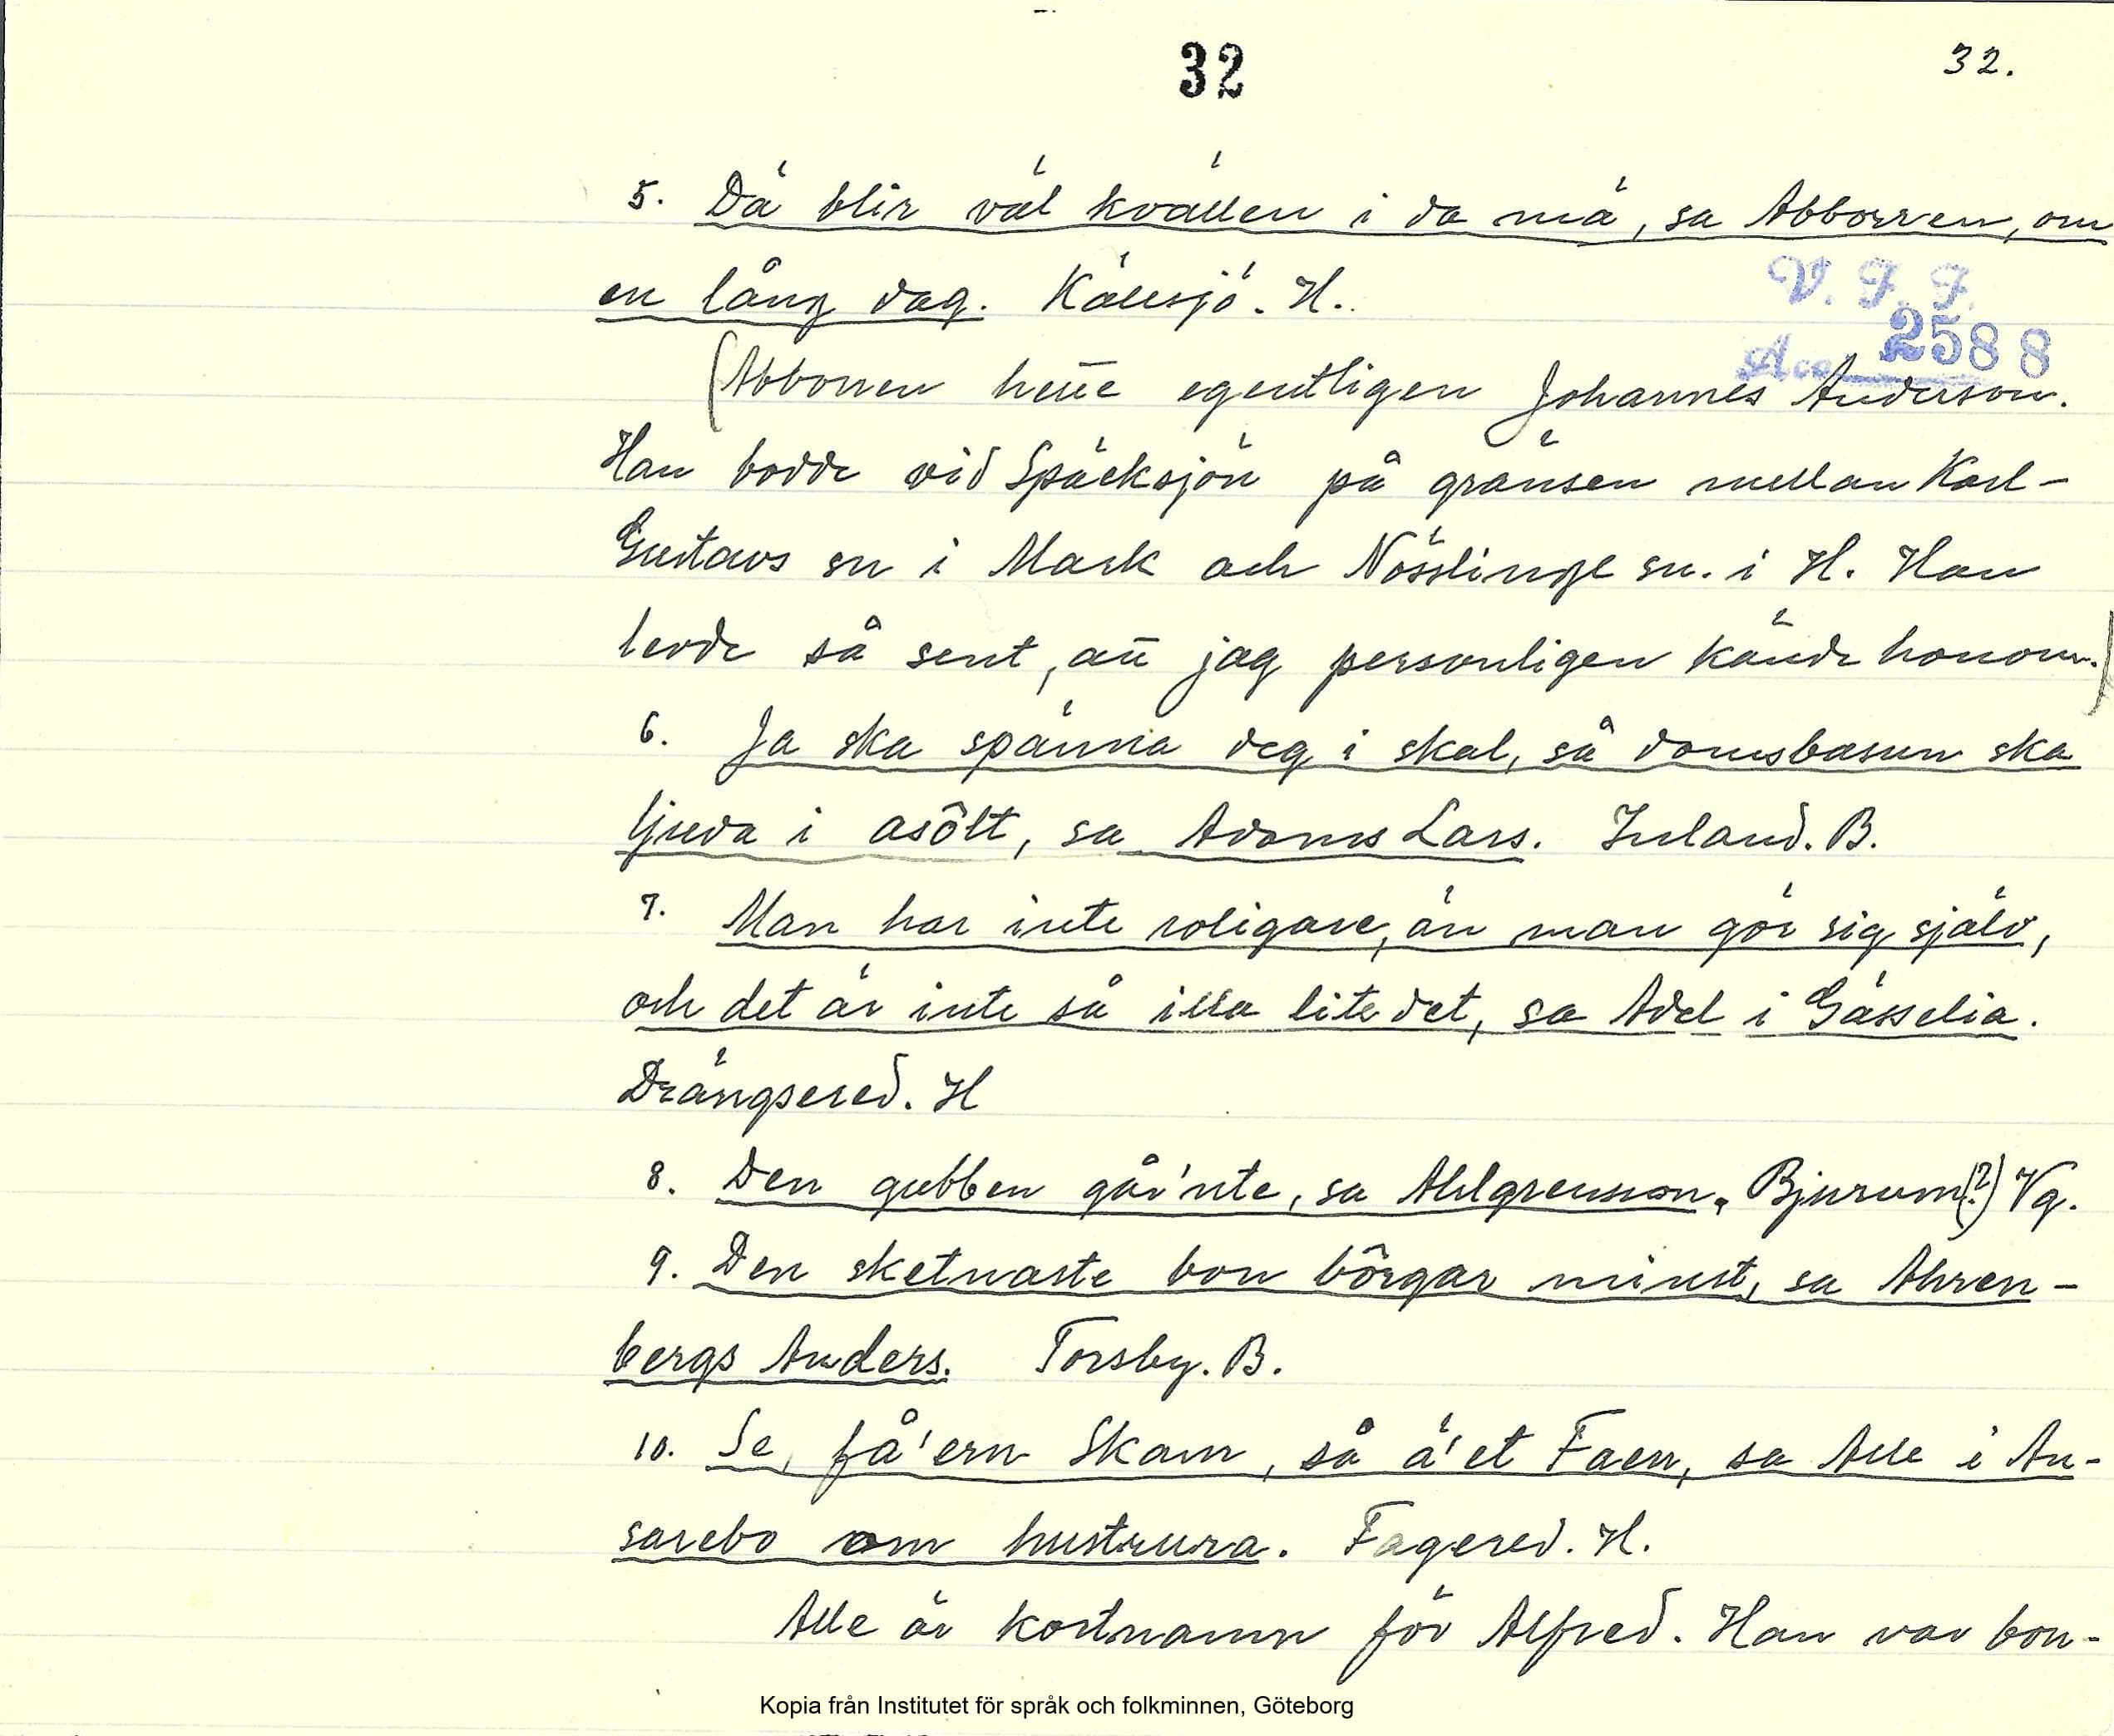 32
32.
5. Dä blir väl kvällen i da mä, sa Abborren, om
en lång dag. Källsjö. H.
V. F. F.
Acc 2588
(Abborren hette egentligen Johannes Anderson.
Han bodde vid Späcksjön på gränsen mellan Karl-
Gustavs sn i Mark och Nösslinge sn. i H. Han
levde så sent, att jag personligen kände honom.)
6. Ja ska spänna deg i skal, så domsbasun ska
ljuda i asôlt, sa Adams Lars. Inland. B.
7. Man har inte roligare, än man gör sig själv,
och det är inte så illa lite det, sa Adel i Gässelia.
Drängsered. H
8. Den gubben går'nte, sa Ahlgrensson. Bjurum(?) Vg.
9. Den sketnaste bon bôrgar minst, sa Ahren-
bergs Anders. Torsby. B.
10. Se, få'ern Skam, så ä'et Faen, sa Alle i An-
sarebo om hustrura. Fagered. H.
Alle är kortnamn för Alfred. Han var bon-
Kopia från Institutet för språk och folkminnen, Göteborg